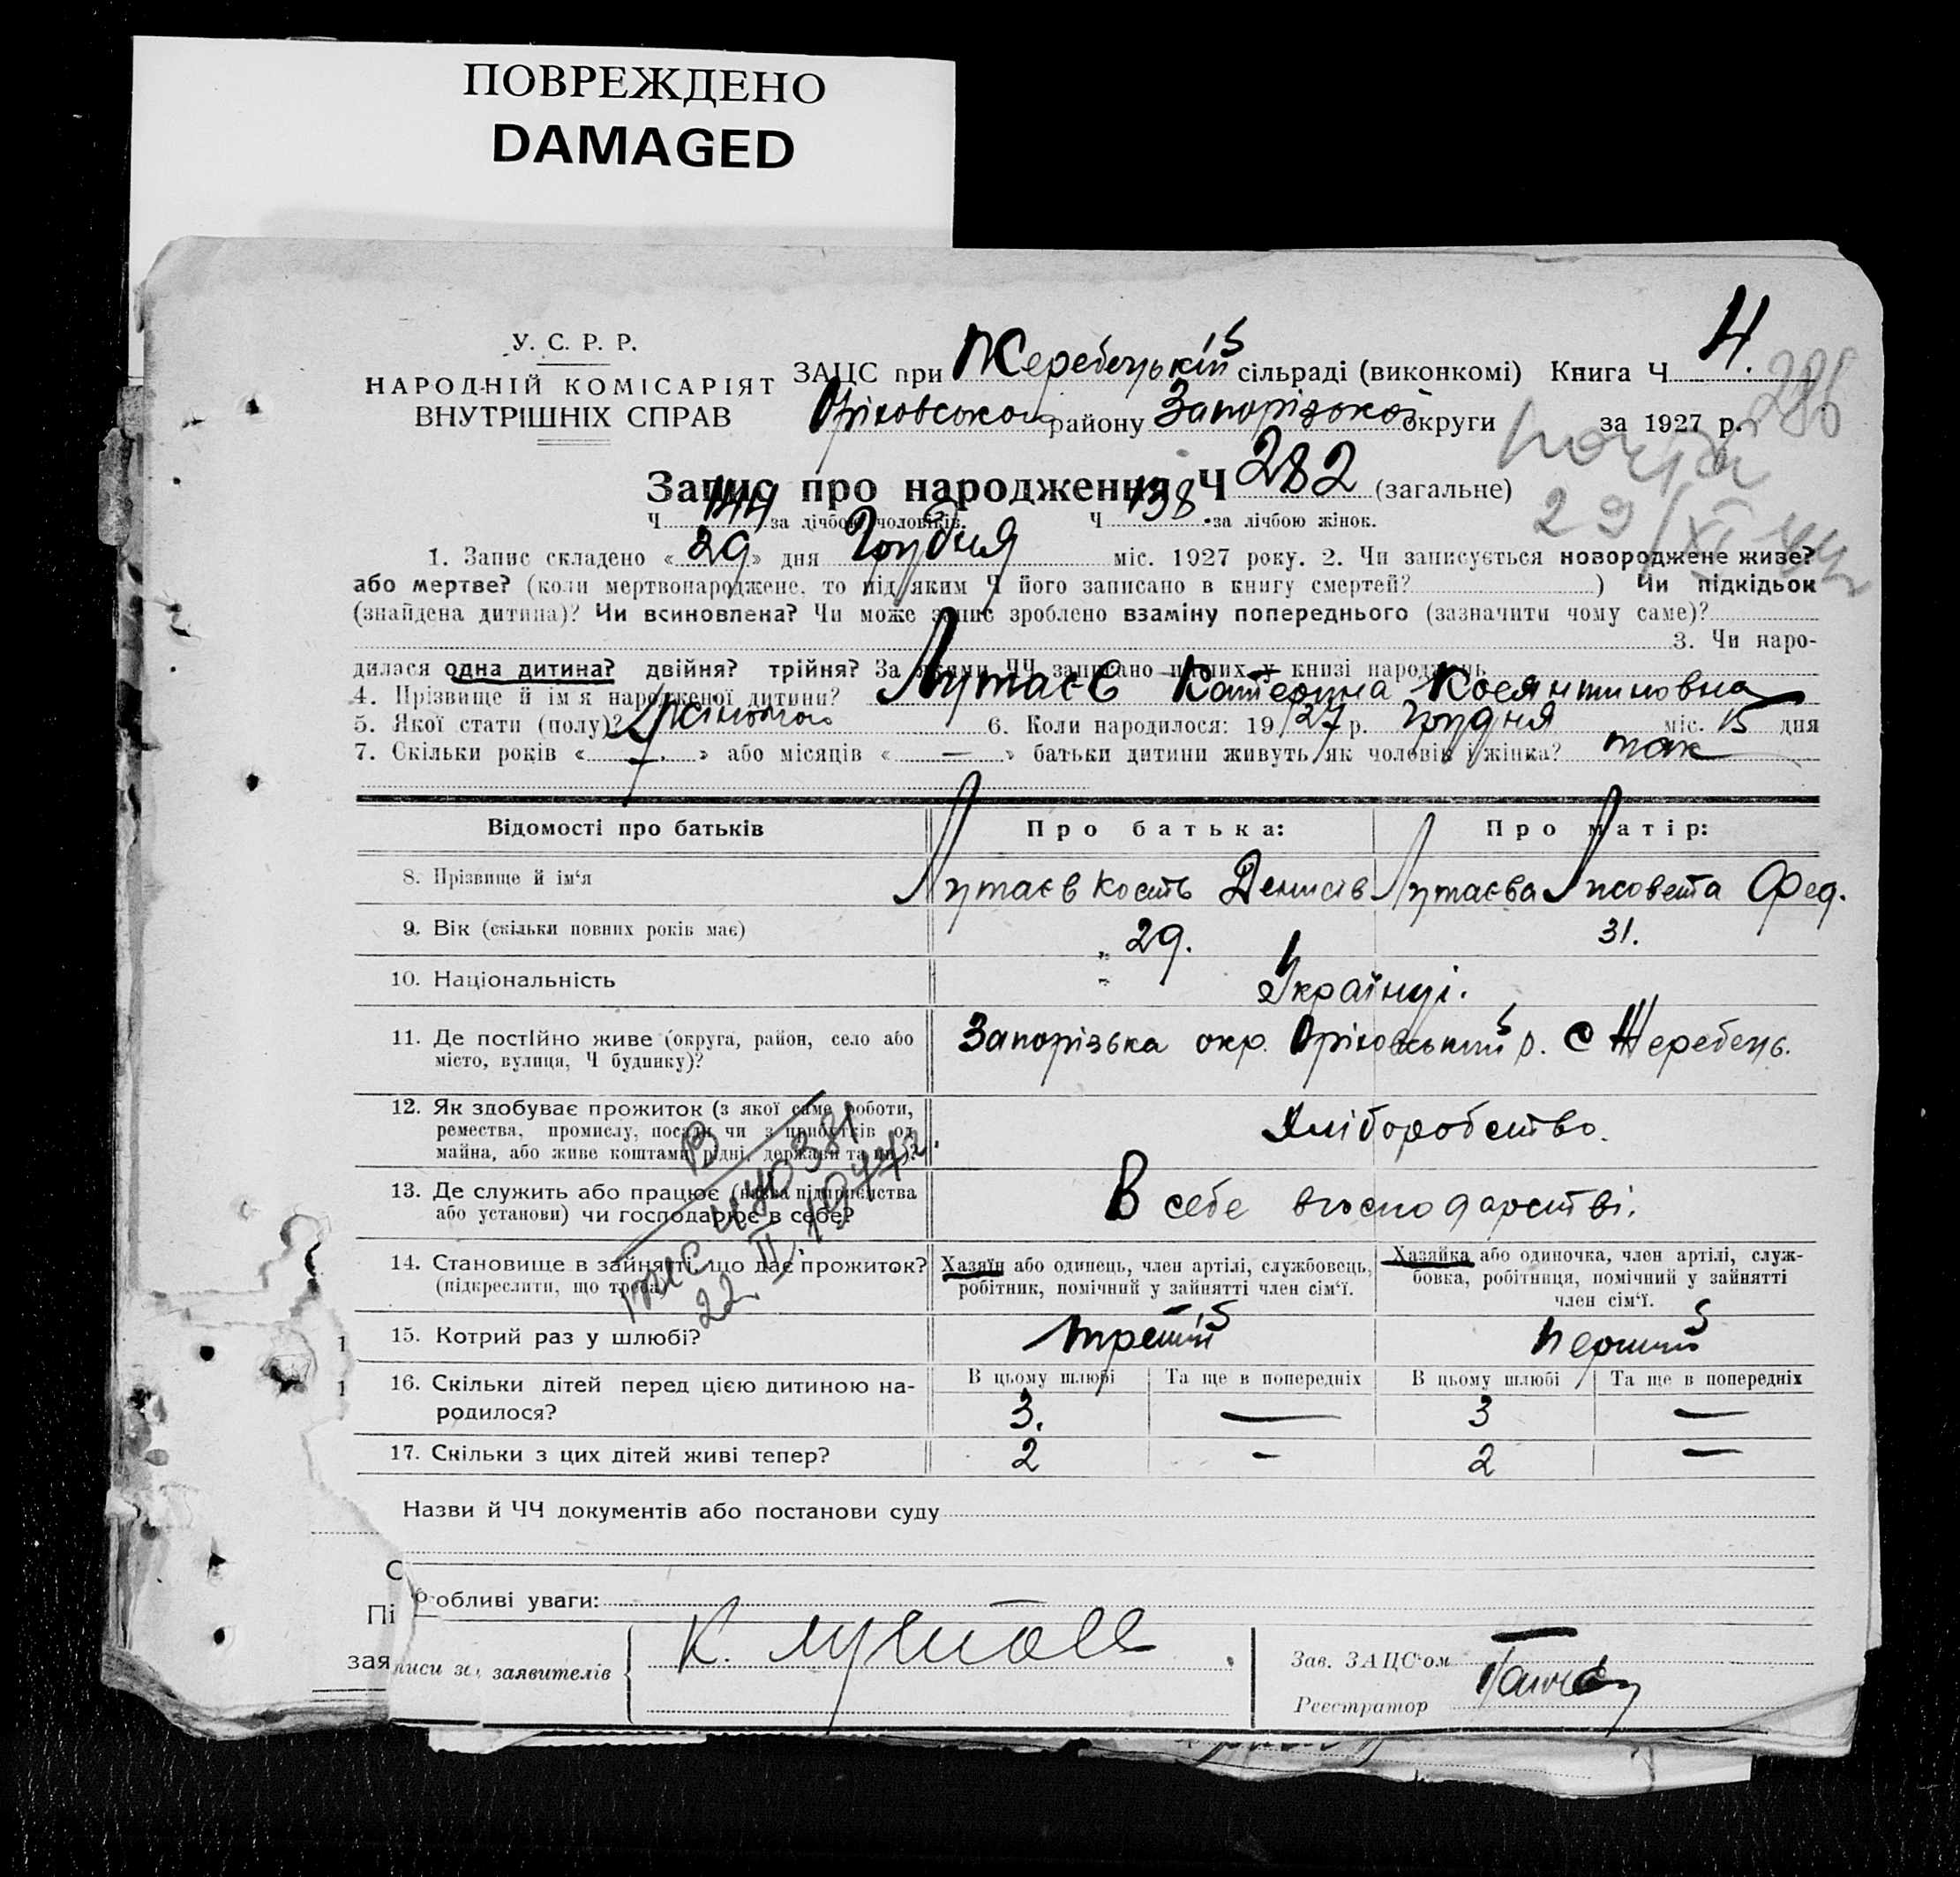 ПОВРЕЖДЕНО
DAMAGED
У. С. Р. Р.
НАРОДНІЙ КОМІСАРІЯТ
ВНУТРІШНІХ СПРАВ
ЗАЦС при Жеребецькій сільраді (виконкомі) Книга Ч 4.
286
Оріховського району Запорізької округи за 1927 р.
Запис про народження Ч 282 (загальне)
Ч 144 за лічбою чоловіків. Ч 138 за лічбою жінок.
29/XI
1. Запис складено «29» дня Грудня міс. 1927 року. 2. Чи записується новороджене живе?
або мертве? (коли мертвонароджене, то під яким Ч його записано в книгу смертей? ) Чи підкідьок
(знайдена дитина)? Чи всиновлена? Чи може запис зроблено взаміну попереднього (зазначити чому саме)?
3. Чи наро-
дилася одна дитина? двійня? трійня? За якими ЧЧ записано инших у книзі народжень
4. Прізвище й ім'я народженої дитини? Лутаєв Катерина Косянтиновна
5. Якої стати (полу)? Жіночої 6. Коли народилося: 1927 р. грудня міс. 15 дня
7. Скільки років « — » або місяців « — » батьки дитини живуть як чоловік і жінка? так
Відомості про батьків Про батька: Про матір:
8. Прізвище й ім'я Лутаєв Кость Денисів Лутаєва Лисовета Фед.
9. Вік (скільки повних років має) 29. 31.
10. Національність Українці.
11. Де постійно живе (округа, район, село або Запорізька окр. Оріховський р. с Жеребець.
місто, вулиця, Ч будинку)?
12. Як здобуває прожиток (з якої саме роботи, Хліборобство.
ремества, промислу, посади чи з прибутків од
майна, або живе коштами рідні, держави та ин.)?
13. Де служить або працює (назва підприємства В себе вгосподарстві.
або установи) чи господарює в себе?
14. Становище в зайнятті, що дає прожиток? Хазяїн або одинець, член артілі, службовець, Хазяйка або одиночка, член артілі, служ-
(підкреслити, що треба) робітник, помічний у зайнятті член сім'ї. бовка, робітниця, помічний у зайнятті
член сім'ї.
22 II
15. Котрий раз у шлюбі? третій перший
16. Скільки дітей перед цією дитиною на- В цьому шлюбі Та ще в попередніх В цьому шлюбі Та ще в попередніх
родилося? 3. — 3 —
17. Скільки з цих дітей живі тепер? 2 - 2 —
Назви й ЧЧ документів або постанови суду
обливі уваги:
К. Лутаєв
заявителів
Зав. ЗАЦС'ом
Реєстратор